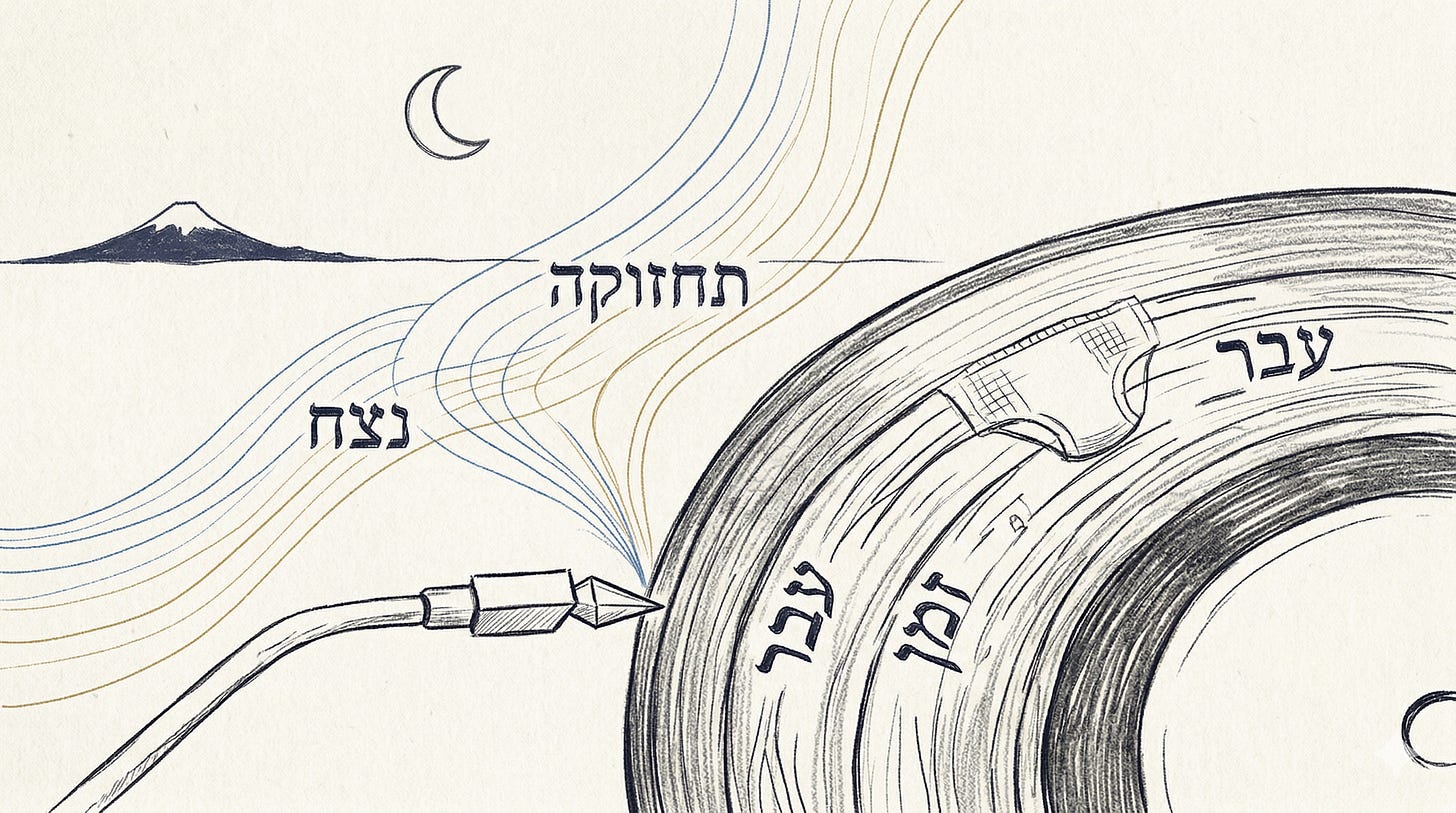 תחזוקה
עבר
נצח
עבר
זמן